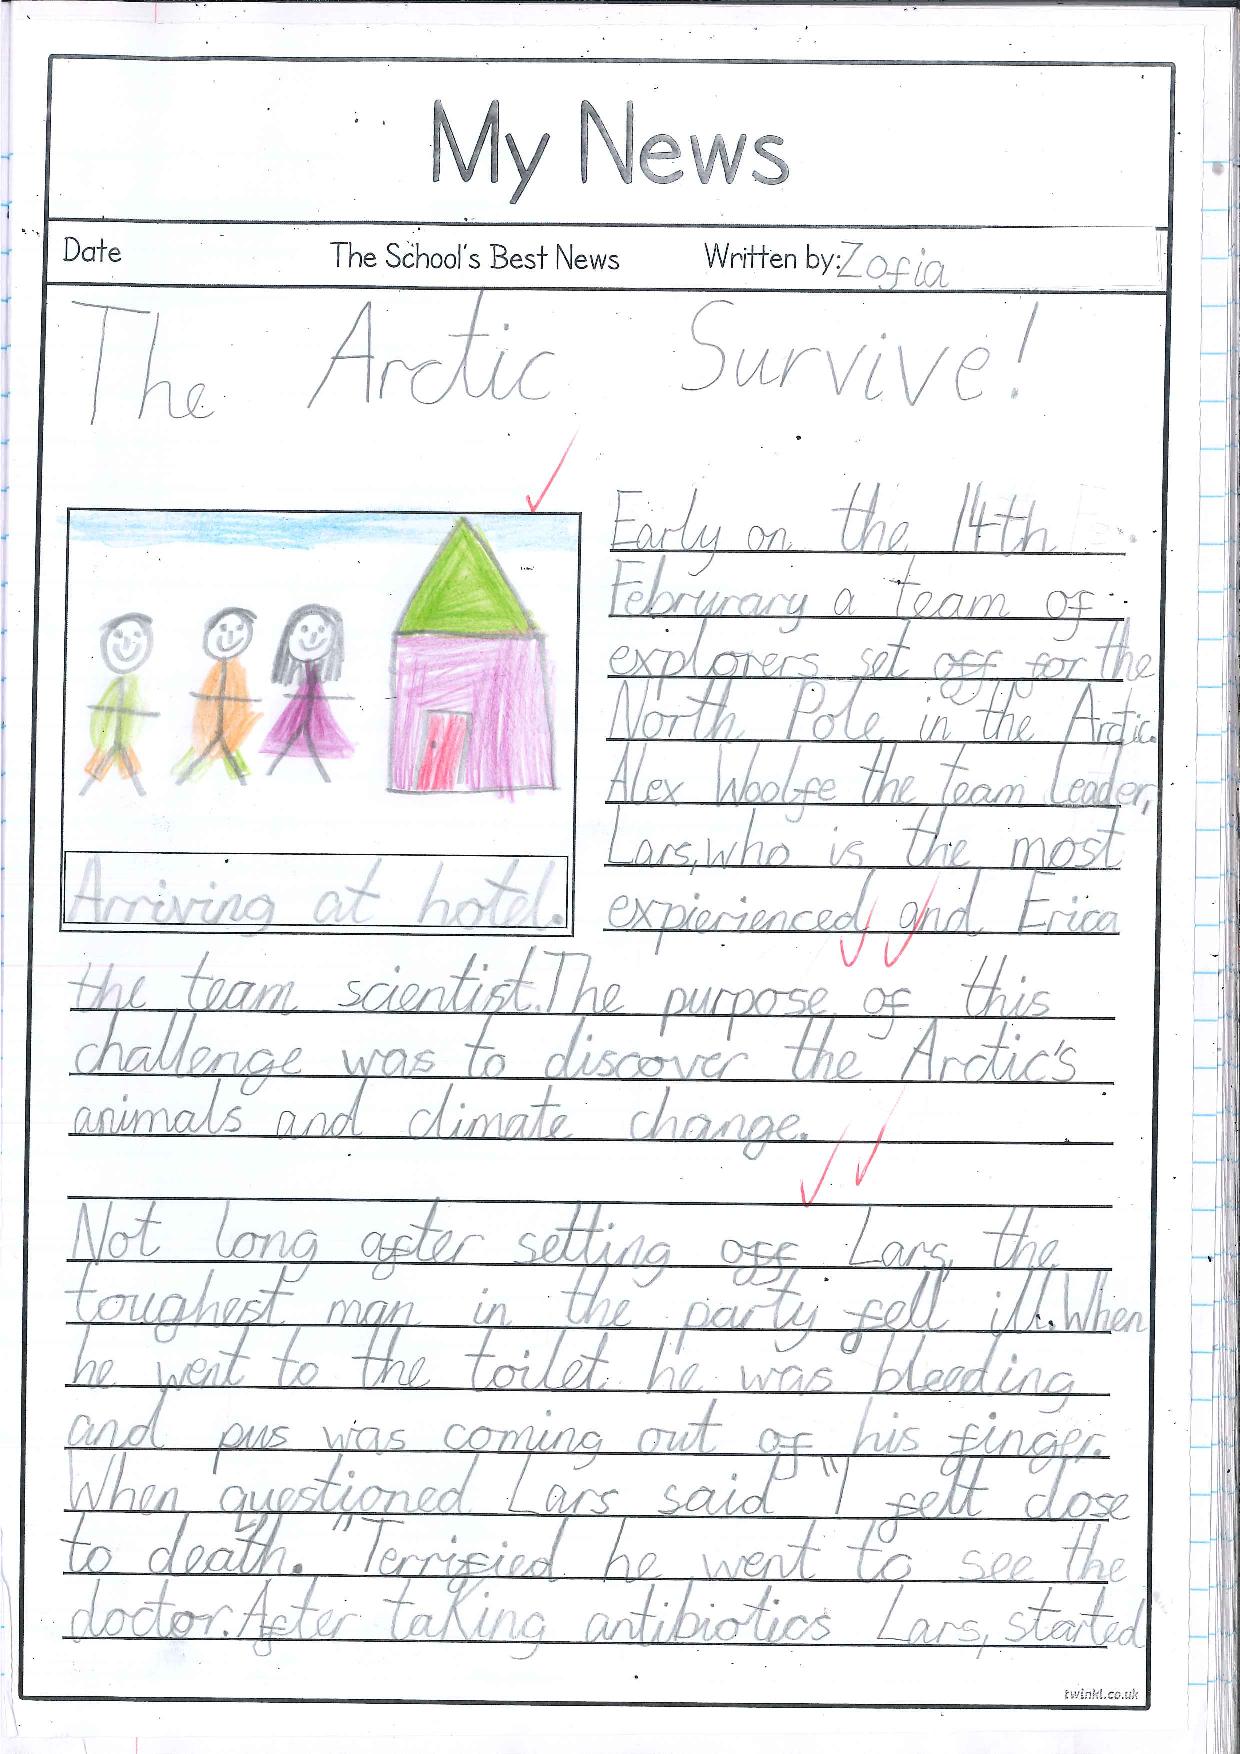 My News
Date The School's Best News Written by: Zofia
The Arctic Survive!
Early on the 14th
Februrary a team of
explorers set off for the
North Pole in the Arctic.
Alex Woolfe the team leader,
Lars, who is the most
expierienced and Erica
Arriving at hotel.
the team scientist. The purpose of this
challenge was to discover the Arctic's
animals and climate change.
Not long after setting off Lars, the
toughest man in the party fell ill. When
he went to the toilet he was bleeding
and pus was coming out of his finger.
When questioned Lars said "I felt close
to death. "Terrified he went to see the
doctor. After taking antibiotics Lars, started
twinkl.co.uk